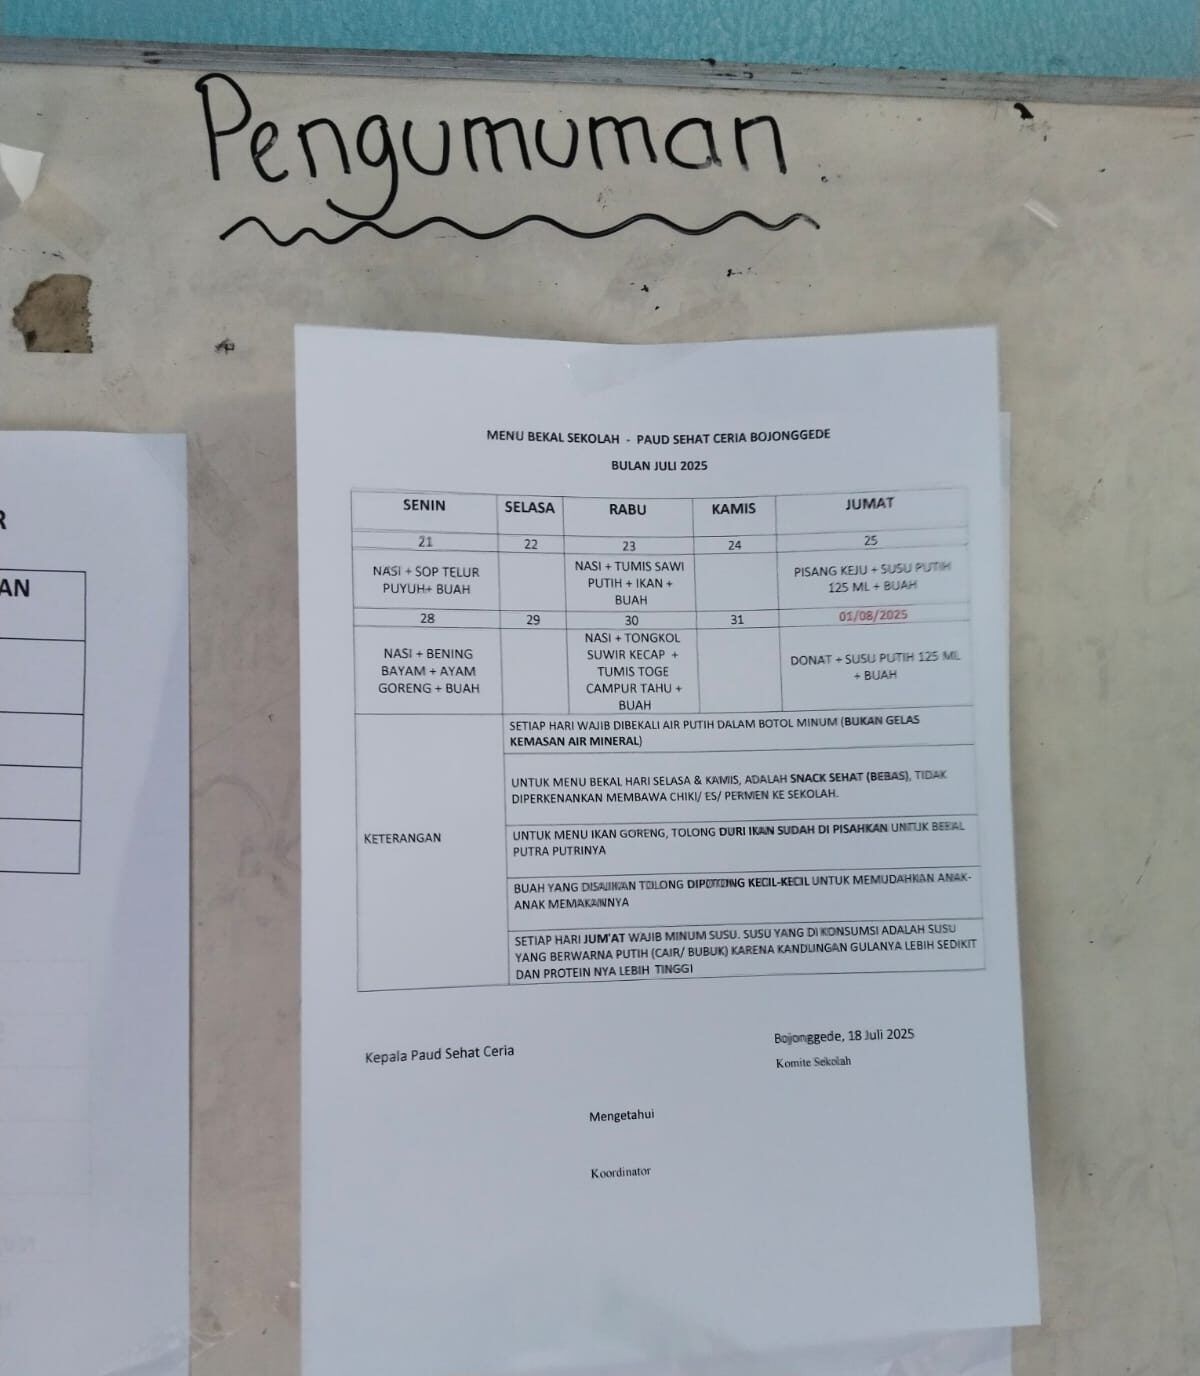 Pengumuman
R
AN
MENU BEKAL SEKOLAH - PAUD SEHAT CERIA BOJONGGEDE
BULAN JULI 2025
SENIN SELASA RABU KAMIS JUMAT
21 22 23 24 25
NASI + SOP TELUR
PUYUH+ BUAH
NASI + TUMIS SAWI
PUTIH + IKAN +
BUAH
PISANG KEJU + SUSU PUTIH
125 ML + BUAH
28 29 30 31 01/08/2025
NASI + BENING
BAYAM + AYAM
GORENG + BUAH
NASI + TONGKOL
SUWIR KECAP +
TUMIS TOGE
CAMPUR TAHU +
BUAH
DONAT + SUSU PUTIH 125 ML
+ BUAH
KETERANGAN
SETIAP HARI WAJIB DIBEKALI AIR PUTIH DALAM BOTOL MINUM (BUKAN GELAS
KEMASAN AIR MINERAL)
UNTUK MENU BEKAL HARI SELASA & KAMIS, ADALAH SNACK SEHAT (BEBAS), TIDAK
DIPERKENANKAN MEMBAWA CHIKI/ ES/ PERMEN KE SEKOLAH.
UNTUK MENU IKAN GORENG, TOLONG DURI IKAN SUDAH DI PISAHKAN UNTUK BEKAL
PUTRA PUTRINYA
BUAH YANG DISAJIKAN TOLONG DIPOTONG KECIL-KECIL UNTUK MEMUDAHKAN ANAK-
ANAK MEMAKANNYA
SETIAP HARI JUM'AT WAJIB MINUM SUSU. SUSU YANG DI KONSUMSI ADALAH SUSU
YANG BERWARNA PUTIH (CAIR/ BUBUK) KARENA KANDUNGAN GULANYA LEBIH SEDIKIT
DAN PROTEIN NYA LEBIH TINGGI
Bojonggede, 18 Juli 2025
Kepala Paud Sehat Ceria
Komite Sekolah
Mengetahui
Koordinator